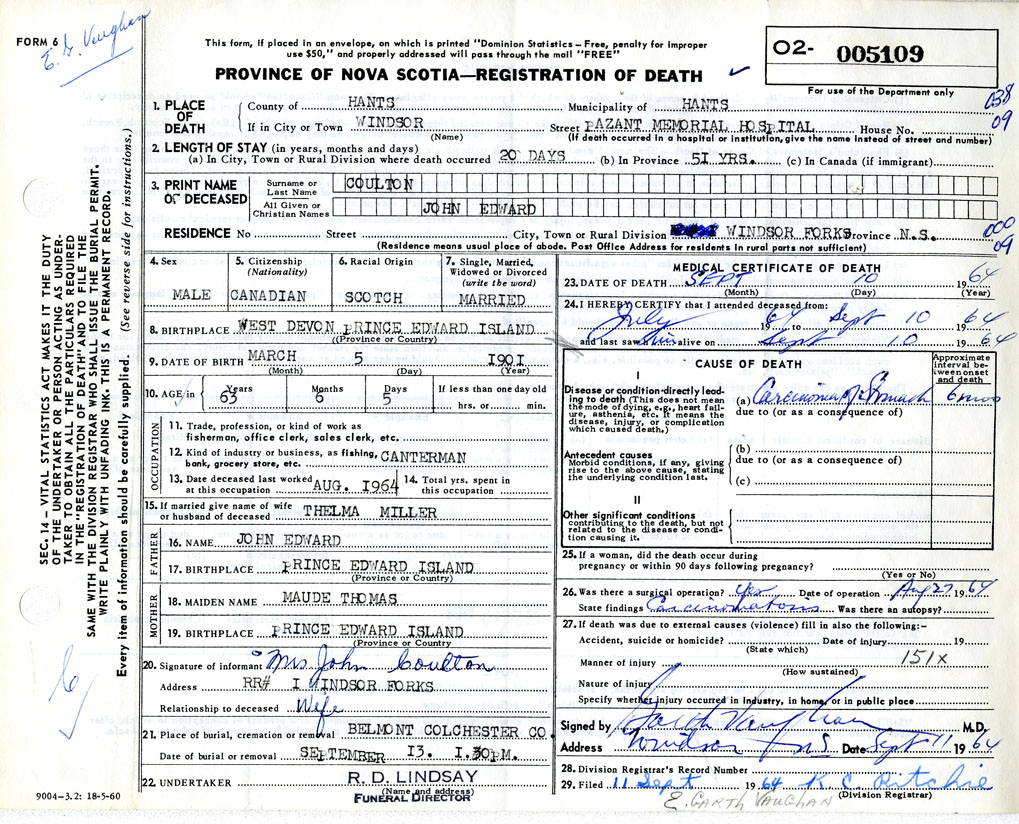 FORM 6
E. G. Vaughan
This form, if placed in an envelope, on which is printed "Dominion Statistics – Free, penalty for improper
use $50," and properly addressed will pass through the mail "FREE"
PROVINCE OF NOVA SCOTIA—REGISTRATION OF DEATH
02- 005109
For use of the Department only
038
09
1. PLACE OF DEATH
County of HANTS Municipality of HANTS
If in City or Town WINDSOR Street PAZANT MEMORIAL HOSPITAL House No.
(Name) (If death occurred in a hospital or institution, give the name instead of street and number)
2. LENGTH OF STAY (in years, months and days)
(a) In City, Town or Rural Division where death occurred 20 DAYS (b) In Province 51 YRS. (c) In Canada (if immigrant)
3. PRINT NAME OF DECEASED
Surname or Last Name COULTON
All Given or Christian Names JOHN EDWARD
000
09
RESIDENCE No Street City, Town or Rural Division WINDSOR FORKS Province N.S.
(Residence means usual place of abode. Post Office Address for residents in rural parts not sufficient)
4. Sex MALE
5. Citizenship (Nationality) CANADIAN
6. Racial Origin SCOTCH
7. Single, Married, Widowed or Divorced (write the word) MARRIED
8. BIRTHPLACE WEST DEVON PRINCE EDWARD ISLAND
(Province or Country)
9. DATE OF BIRTH MARCH 5 1901
(Month) (Day) (Year)
10. AGE in Years 63 Months 6 Days 5 If less than one day old hrs. or min.
OCCUPATION
11. Trade, profession, or kind of work as
fisherman, office clerk, sales clerk, etc.
12. Kind of industry or business, as fishing, CANTERMAN
bank, grocery store, etc.
13. Date deceased last worked at this occupation AUG. 1964
14. Total yrs. spent in this occupation
15. If married give name of wife or husband of deceased THELMA MILLER
FATHER
16. NAME JOHN EDWARD
17. BIRTHPLACE PRINCE EDWARD ISLAND
(Province or Country)
MOTHER
18. MAIDEN NAME MAUDE THOMAS
19. BIRTHPLACE PRINCE EDWARD ISLAND
(Province or Country)
20. Signature of informant Mrs John Coulton
Address RR# I WINDSOR FORKS
Relationship to deceased Wife
21. Place of burial, cremation or removal BELMONT COLCHESTER CO.
Date of burial or removal SEPTEMBER 13. 1.30PM.
22. UNDERTAKER R. D. LINDSAY
(Name and address)
FUNERAL DIRECTOR
MEDICAL CERTIFICATE OF DEATH
23. DATE OF DEATH SEPT 10 1964
(Month) (Day) (Year)
24. I HEREBY CERTIFY that I attended deceased from:
July 1964 to Sept 10 1964
and last saw him alive on Sept 10 1964
CAUSE OF DEATH
Approximate interval between onset and death
I
Disease or condition directly leading to death (This does not mean the mode of dying, e.g., heart failure, asthenia, etc. It means the disease, injury, or complication which caused death.)
(a) Carcinoma of Stomach 6 mos
due to (or as a consequence of)
Antecedent causes
Morbid conditions, if any, giving rise to the above cause, stating the underlying condition last.
(b)
due to (or as a consequence of)
(c)
II
Other significant conditions
contributing to the death, but not related to the disease or condition causing it.
25. If a woman, did the death occur during
pregnancy or within 90 days following pregnancy?
(Yes or No)
26. Was there a surgical operation? Yes Date of operation Aug 27 1964
State findings Carcinomatosis Was there an autopsy?
27. If death was due to external causes (violence) fill in also the following:-
Accident, suicide or homicide? Date of injury 19
(State which)
151x
Manner of injury
(How sustained)
Nature of injury
Specify whether injury occurred in industry, in home, or in public place
Signed by Garth Vaughan M.D.
Address Windsor N S Date Sept 11 1964
28. Division Registrar's Record Number
29. Filed 11 Sept 1964 K C Ritchie
(Division Registrar)
E. GARTH VAUGHAN
9004-3.2: 18-5-60
SEC. 14 – VITAL STATISTICS ACT MAKES IT THE DUTY
OF THE UNDERTAKER OR PERSON ACTING AS UNDER-
TAKER TO OBTAIN ALL THE PARTICULARS REQUIRED
IN THE "REGISTRATION OF DEATH" AND TO FILE THE
SAME WITH THE DIVISION REGISTRAR WHO SHALL ISSUE THE BURIAL PERMIT.
WRITE PLAINLY WITH UNFADING INK. THIS IS A PERMANENT RECORD.
Every item of information should be carefully supplied. (See reverse side for instructions.)